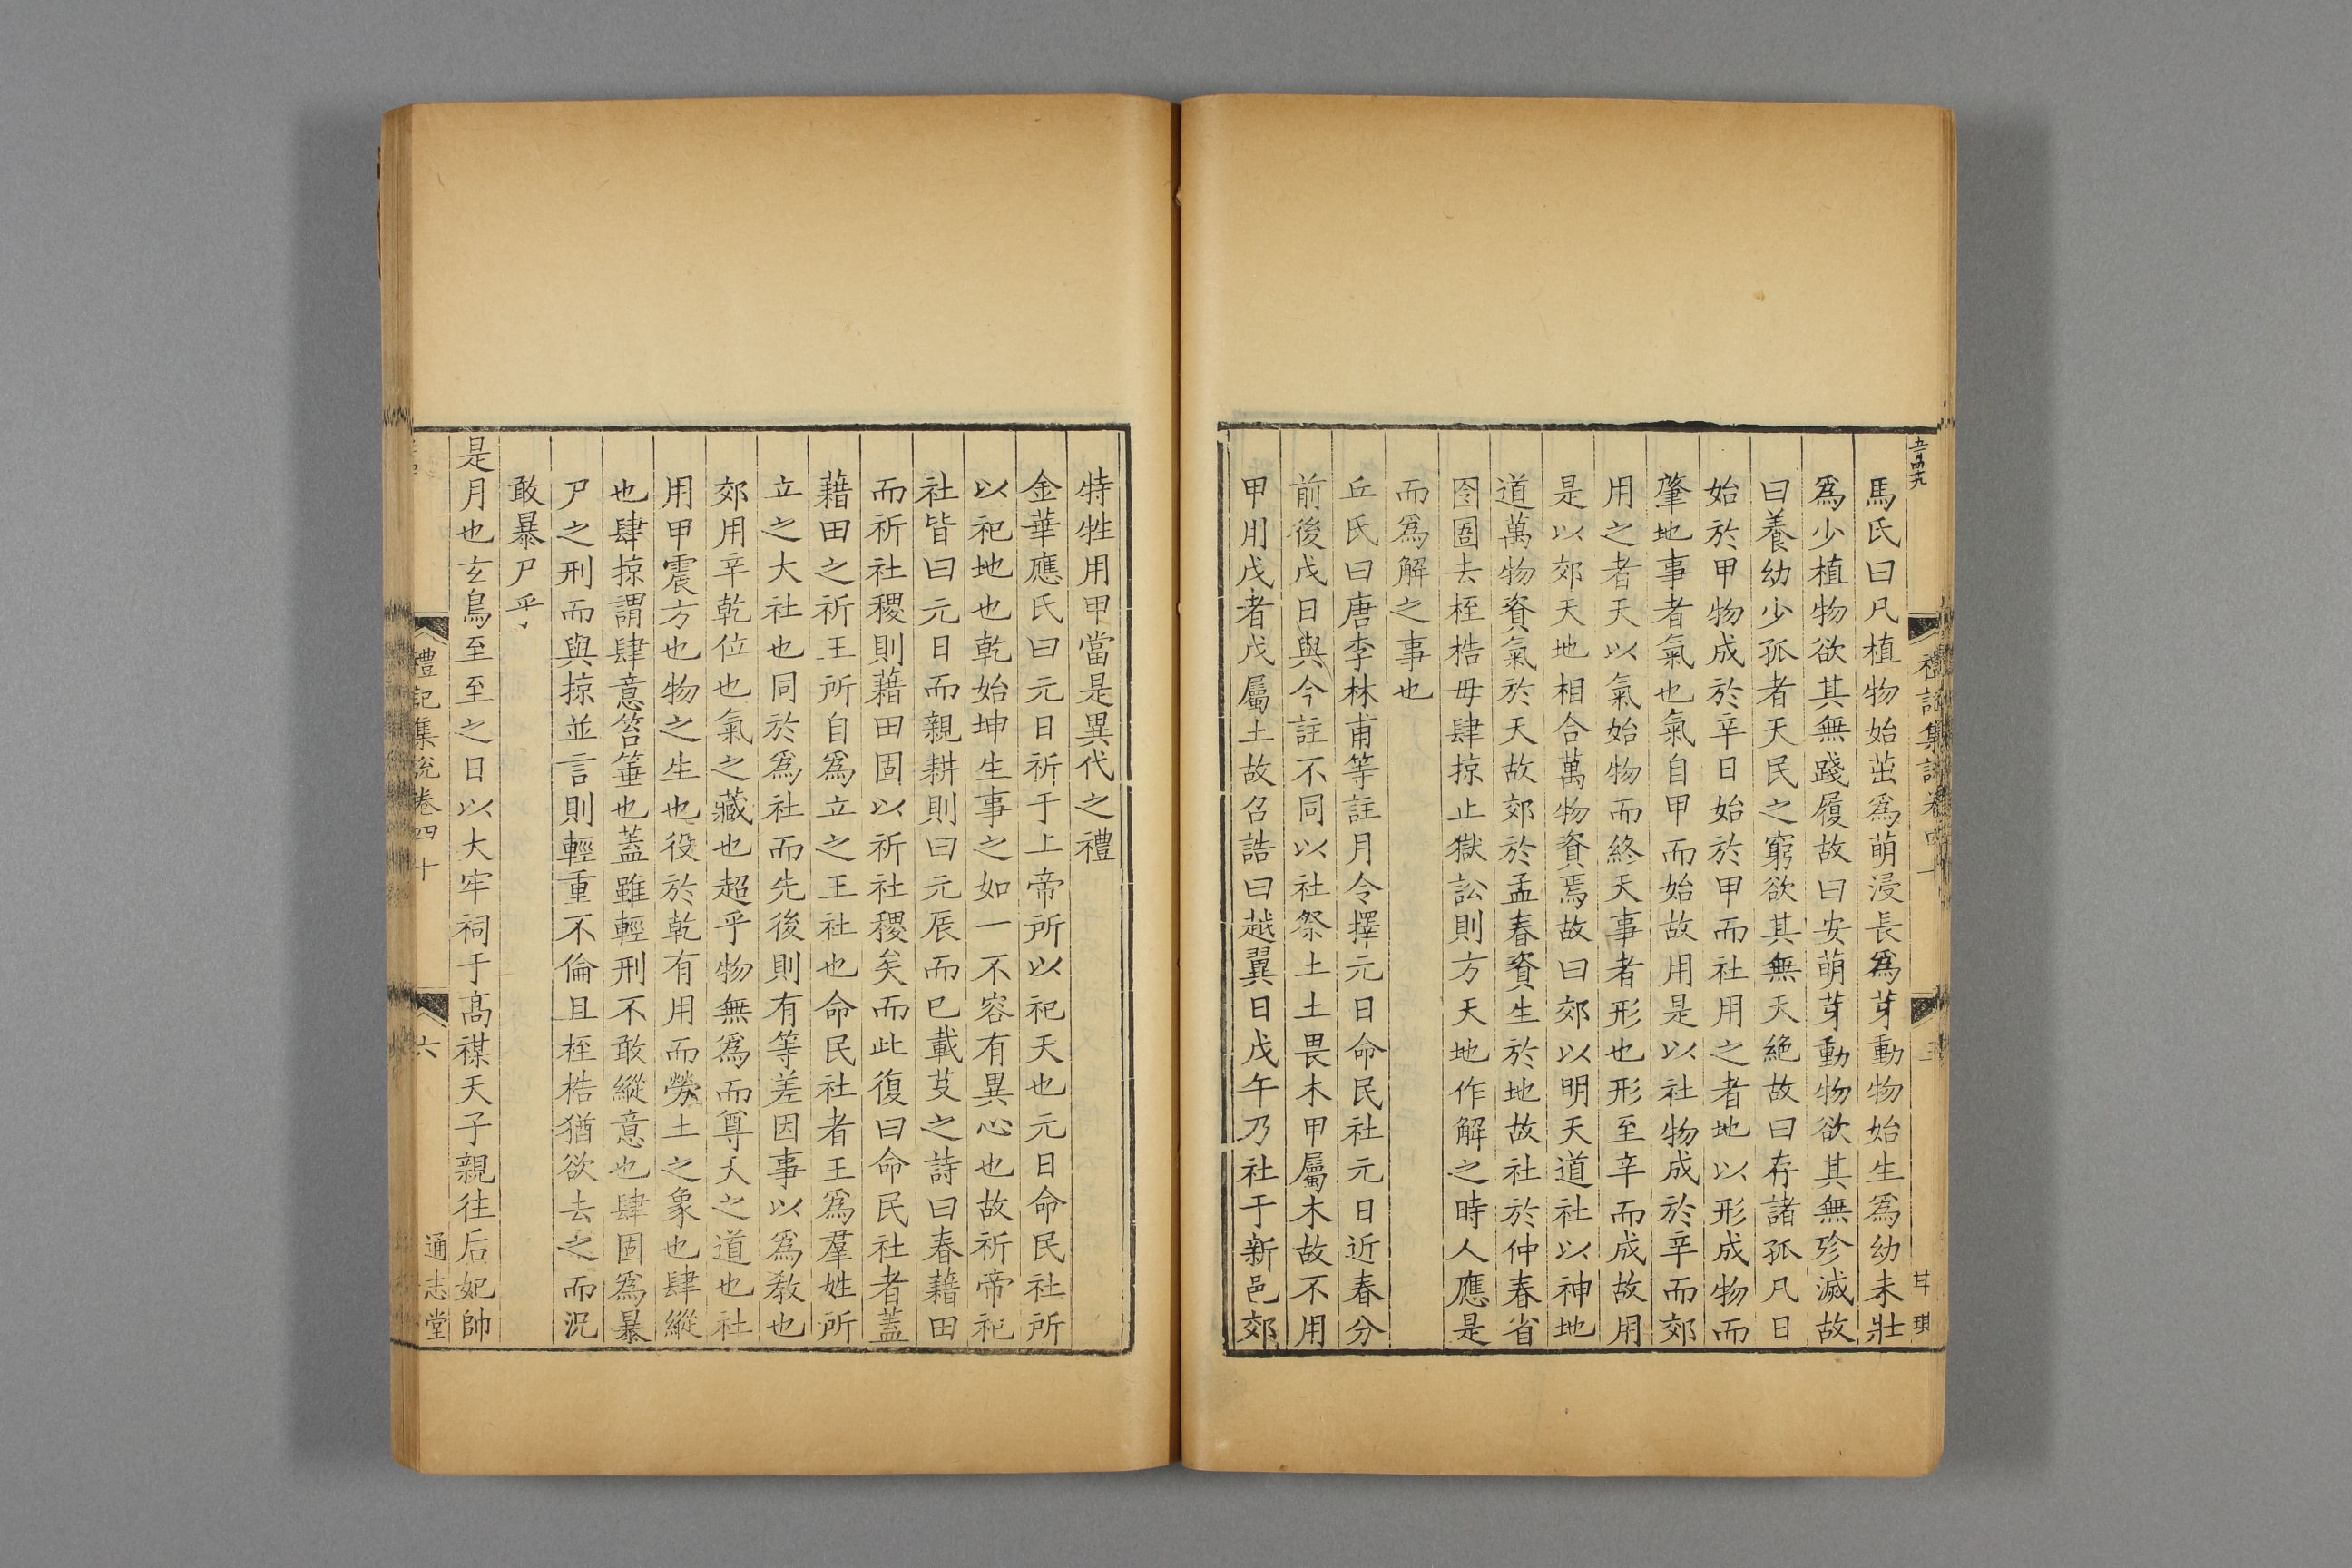 馬氏曰凡植物始茁爲萌浸長爲芽動物始生爲幼未壯
爲少植物欲其無踐履故曰安萌芽動物欲其無殄滅故
曰養幼少孤者天民之窮欲其無夭絶故曰存諸孤凡日
始於甲物成於辛日始於甲而社用之者地以形成物而
肇地事者氣也氣自甲而始故用是以社物成於辛而郊
用之者天以氣始物而終天事者形也形至辛而成故用
是以郊天地相合萬物資焉故曰郊以明天道社以神地
道萬物資氣於天故郊於孟春資生於地故社於仲春省
囹圄去桎梏毋肆掠止獄訟則方天地作解之時人應是
而爲解之事也
丘氏曰唐李林甫等註月令擇元日命民社元日近春分
前後戊日與今註不同以社祭土土畏木甲屬木故不用
甲用戊者戊屬土故召誥曰越翼日戊午乃社于新邑郊
特牲用甲當是異代之禮
金華應氏曰元日祈于上帝所以祀天也元日命民社所
以祀地也乾始坤生事之如一不容有異心也故祈帝祀
社皆曰元日而親耕則曰元辰而已載芟之詩曰春藉田
而祈社稷則藉田固以祈社稷矣而此復曰命民社者蓋
藉田之祈王所自爲立之王社也命民社者王爲羣姓所
立之大社也同於爲社而先後則有等差因事以爲教也
郊用辛乾位也氣之藏也超乎物無爲而尊天之道也社
用甲震方也物之生也役於乾有用而勞土之象也肆縱
也肆掠謂肆意笞箠也蓋雖輕刑不敢縱意也肆固爲暴
尸之刑而與掠並言則輕重不倫且桎梏猶欲去之而況
敢暴尸乎
是月也玄鳥至至之日以大牢祠于高禖天子親往后妃帥
禮記集說卷四十
六
通志堂